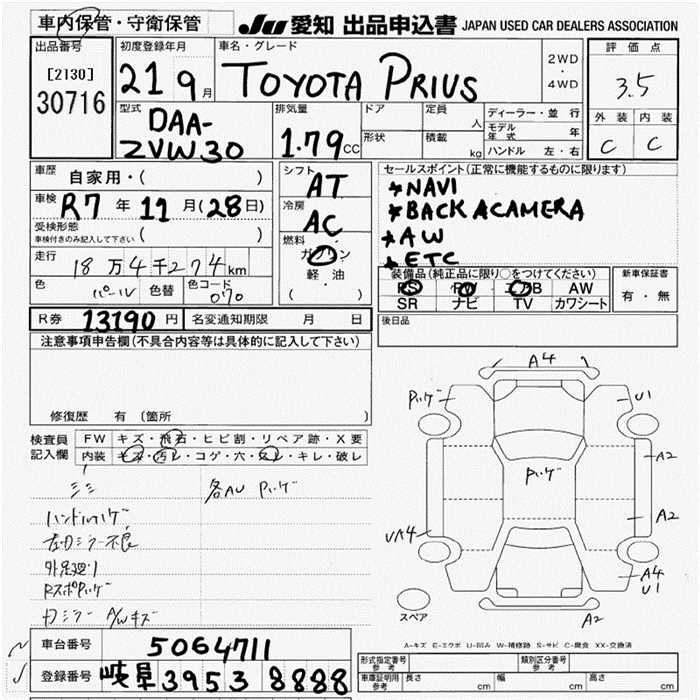 車内保管・守衛保管
JU 愛知 出品申込書 JAPAN USED CAR DEALERS ASSOCIATION
出品番号
[2130]
30716
初度登録年月
21 9月
車名・グレード
TOYOTA PRIUS
2WD
・
4WD
評価点
3.5
外装 内装
C C
型式
DAA-
ZVW30
排気量
1.79cc
ドア
形状
定員 人
積載 kg
ディーラー・並行
モデル年式 年
ハンドル 左・右
車歴
自家用・( )
車検 R7年11月(28日)
受検形態
車検付きのみ記入して下さい ( )
走行
18万4千274km
色 パール 色替 色コード 070
シフト
AT
冷房
AC
燃料
ガソリン
軽油
( )
セールスポイント(正常に機能するものに限ります)
*NAVI
*BACK ACAMERA
*AW
*ETC
装備品(純正品に限り○をつけてください)
PS PW エアB AW
SR ナビ TV カワシート
新車保証書
有・無
R券 13190円 名変通知期限 月 日
後日品
注意事項申告欄(不具合内容等は具体的に記入して下さい)
修復歴 有(箇所
検査員
記入欄
FW キズ・飛石・ヒビ割・リペア跡・X要
内装 キズ・汚レ・コゲ・穴・スレ・キレ・破レ
各AU ハゲ
ハンドルハゲ
左ロミラー不良
A/Wキズ
A4
ハゲ
U1
A2
ハゲ
A2
UA4
A4
U1
A2
スペア
A-キズ E-エクボ U-凹み W-補修跡 S-サビ C-腐食 XX-交換済
車台番号 5064711
登録番号 岐阜 3953 8888
型式指定番号
参考
類別区分番号
参考
車庫証明用
参考
長さ cm
幅 cm
高さ cm